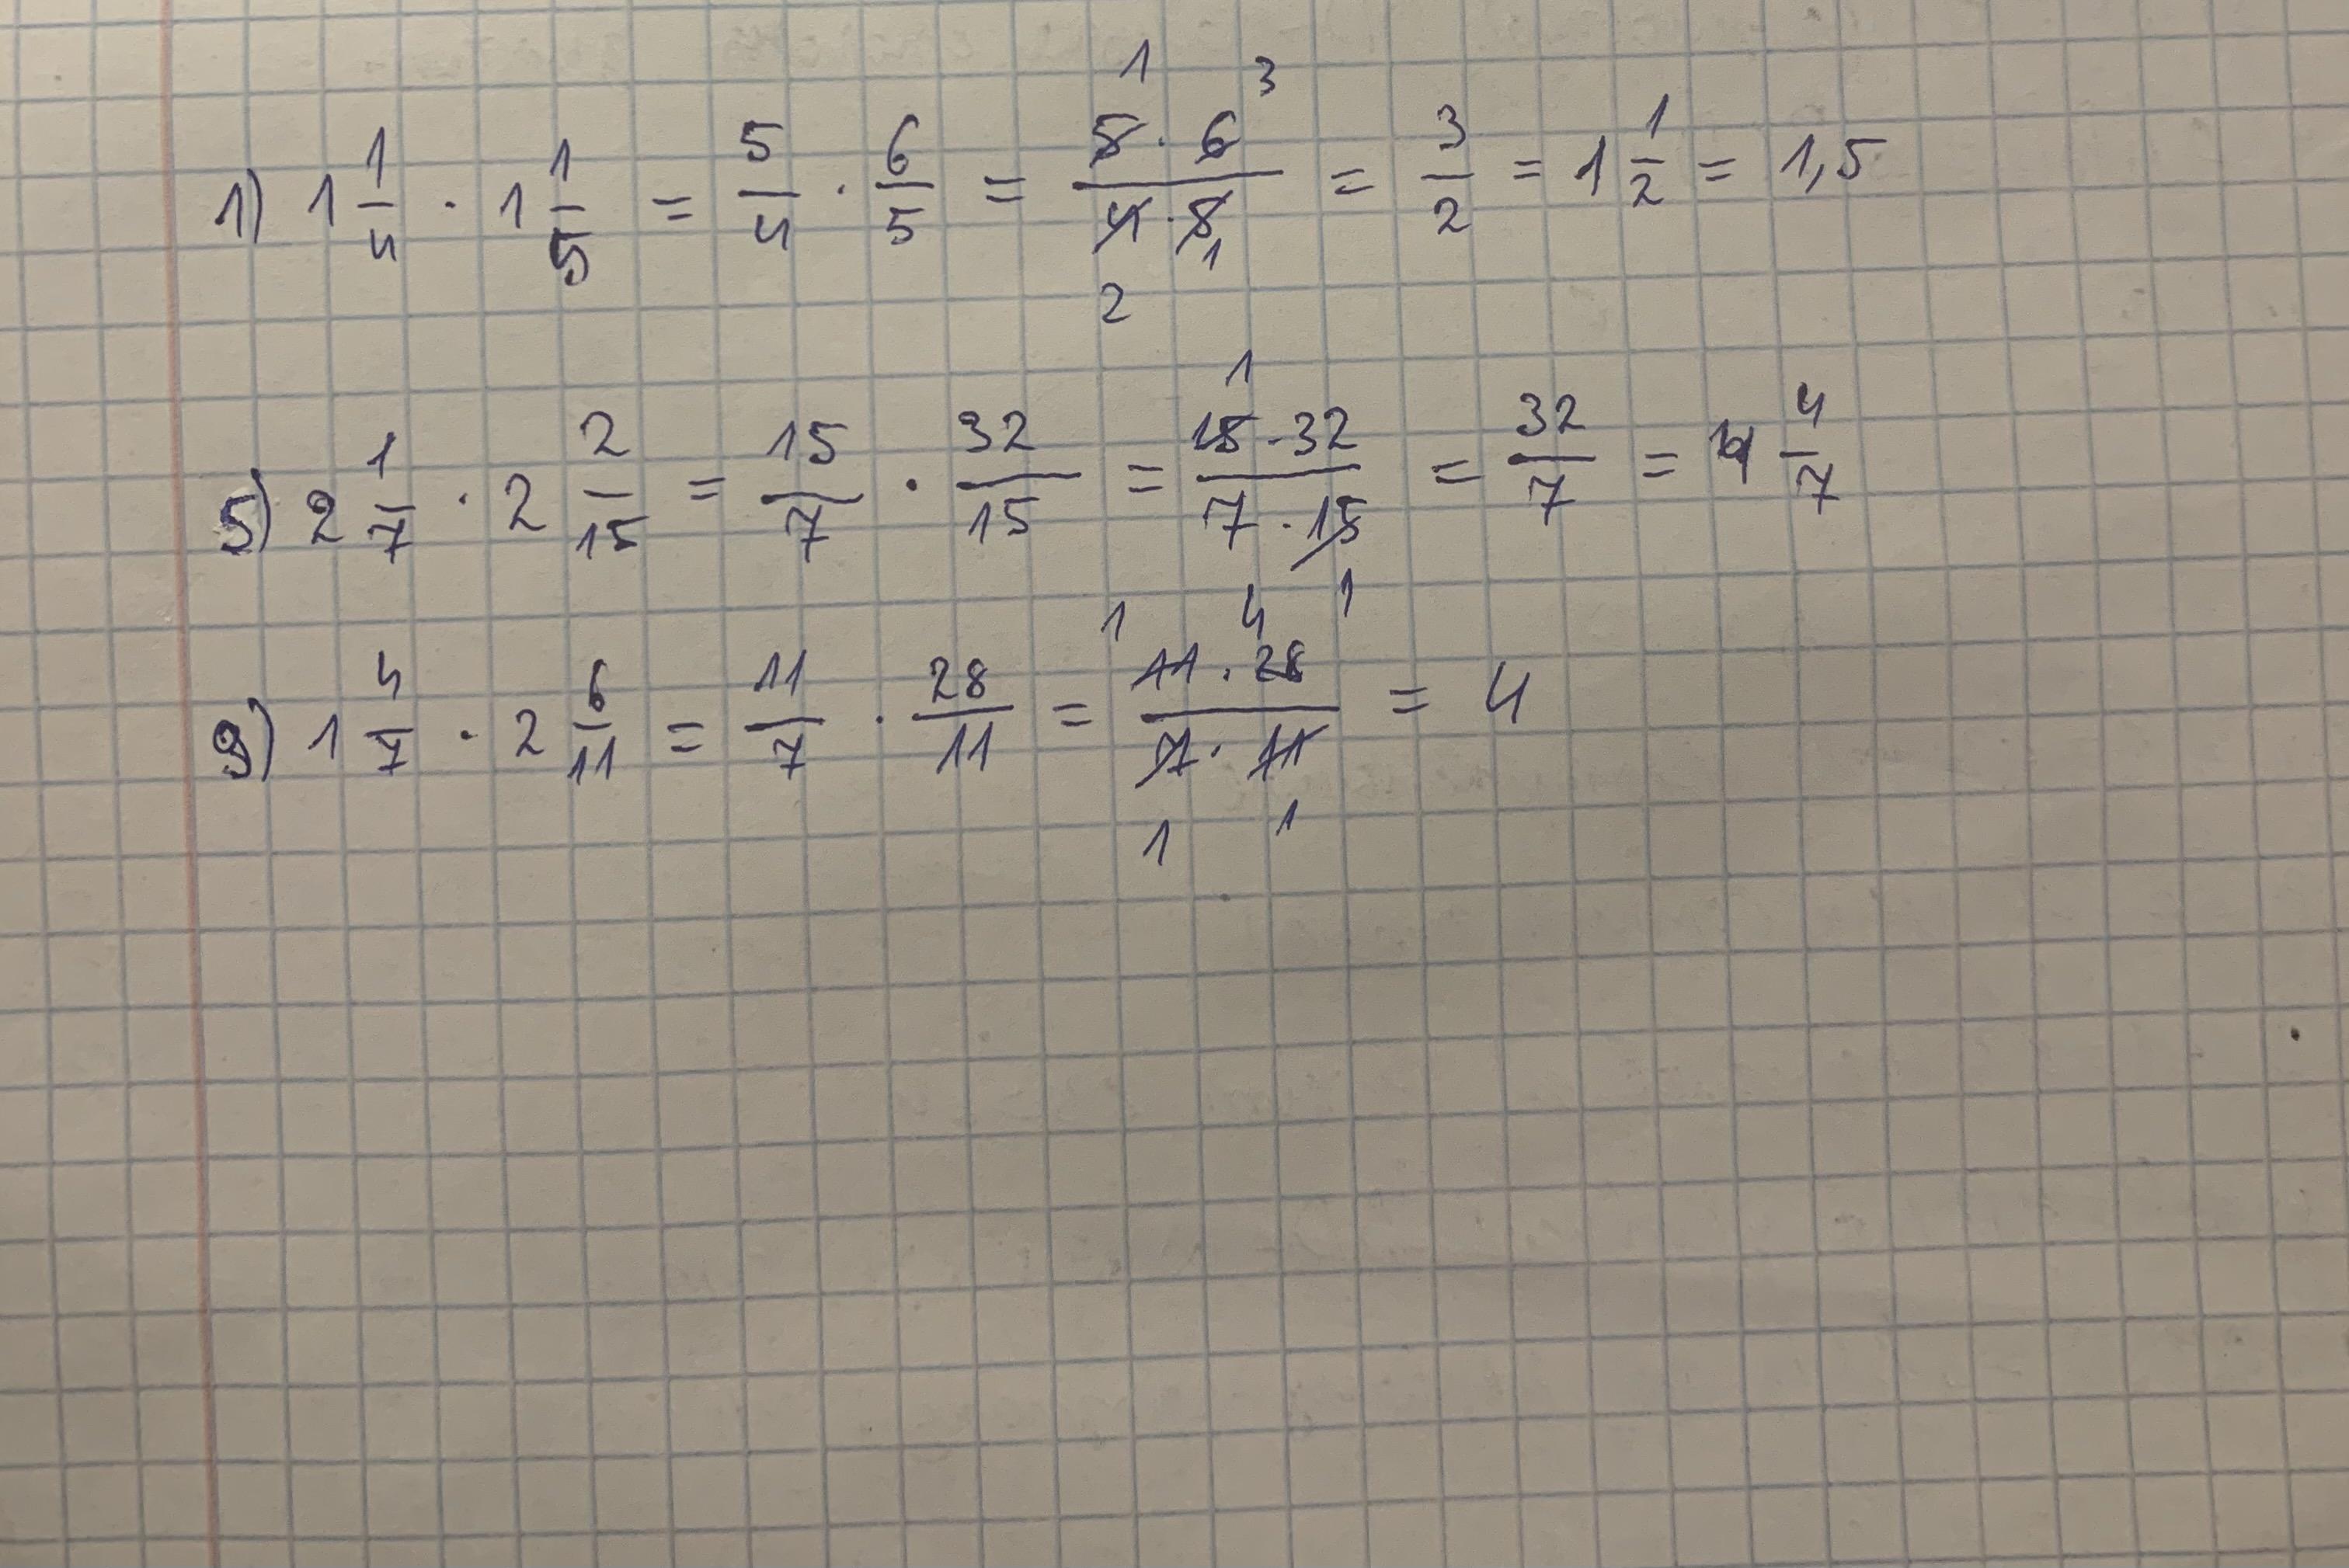 1) 1 1/4 · 1 1/5 = 5/4 · 6/5 = 5·6/4·5 = 3/2 = 1 1/2 = 1,5
5) 2 1/7 · 2 2/15 = 15/7 · 32/15 = 15·32/7·15 = 32/7 = 4 4/7
9) 1 4/7 · 2 6/11 = 11/7 · 28/11 = 11·28/7·11 = 4